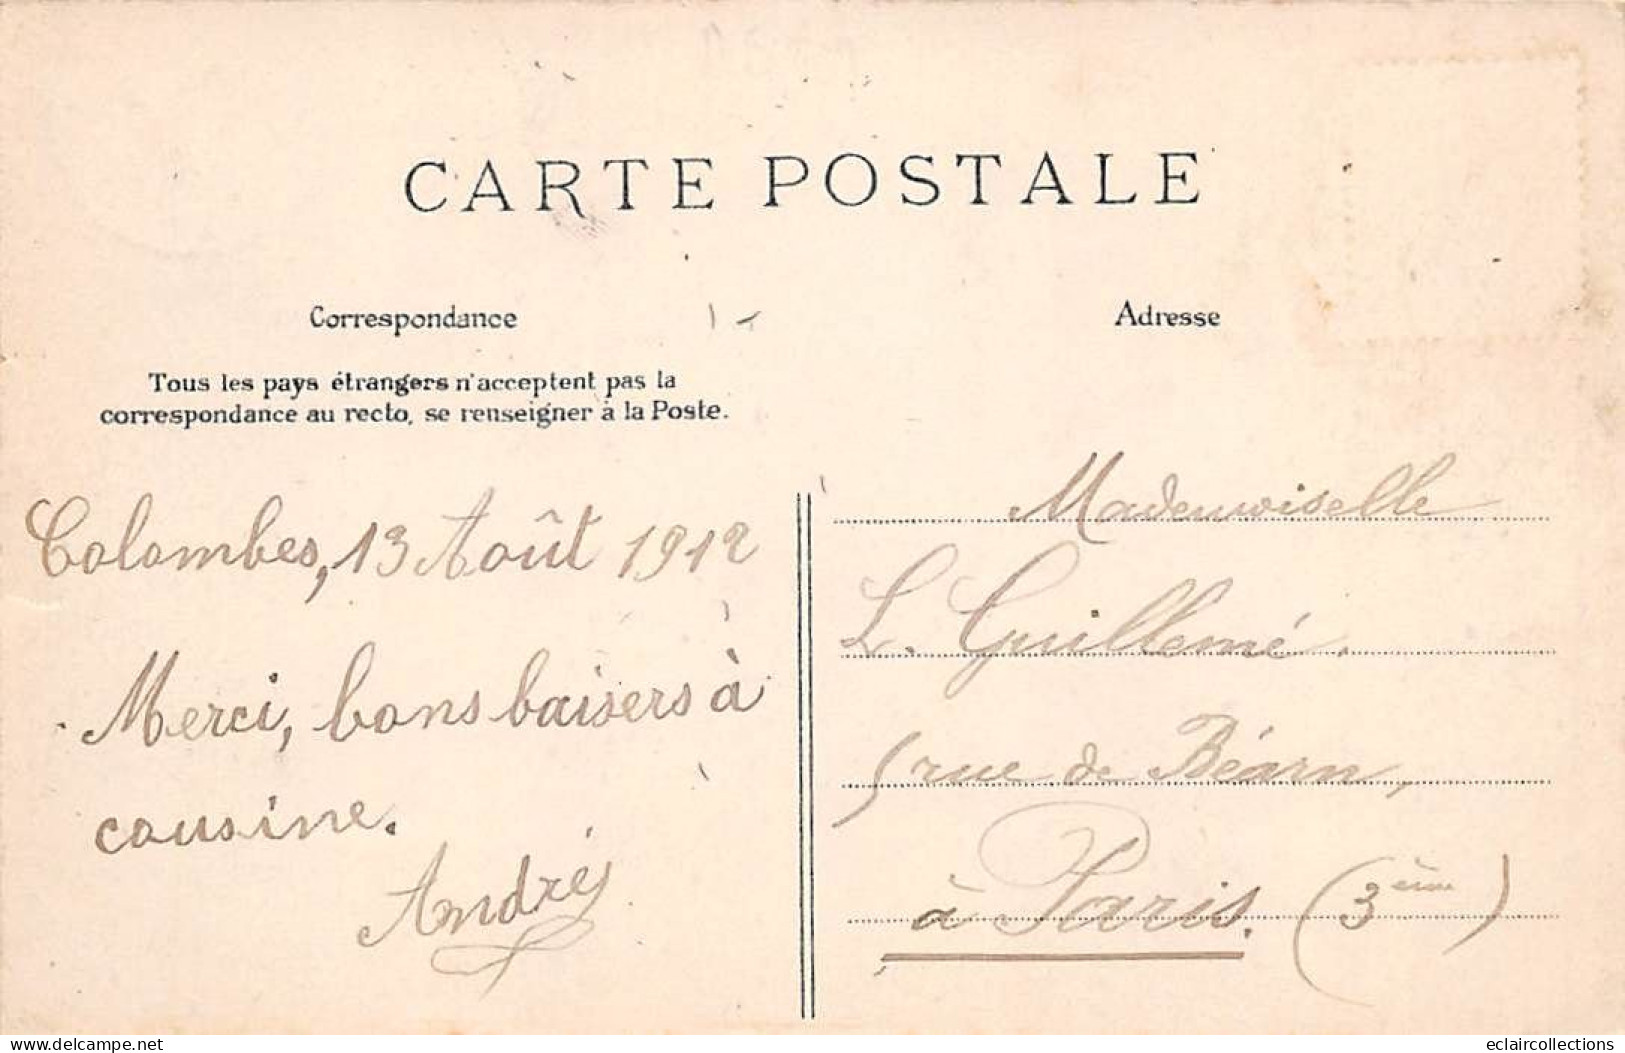 CARTE POSTALE
Correspondance
Tous les pays étrangers n'acceptent pas la
correspondance au recto, se renseigner à la Poste.
Colombes, 13 Août 1912
Merci, bons baisers à
cousine.
André
Adresse
Mademoiselle
L. Guillemé.
5 rue de Béarn,
à Paris. (3ème)
delcampe.net
eclaircollections